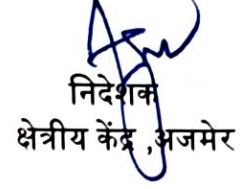 निदेशक
क्षेत्रीय केंद्र ,अजमेर